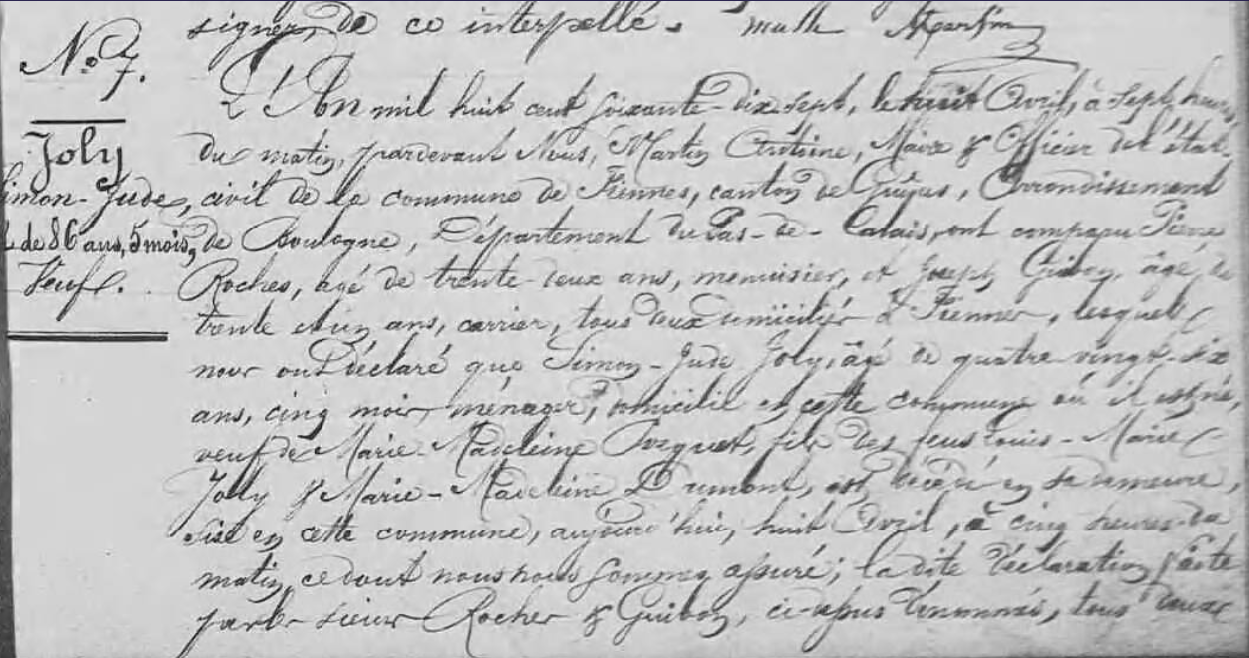 signer, de ce interpellé.
No 7.
L'An mil huit cent soixante-dix-sept, le huit Avril, à sept heures
Joly
du matin, pardevant Nous, Martin Antoine, Maire & Officier de l'état-
Simon-Jude,
civil de la commune de Fiennes, canton de Guînes, Arrondissement
de 86 ans, 5 mois,
de Boulogne, Département du Pas-de-Calais, ont comparu Pierre
Veuf.
Roches, agé de trente-deux ans, menuisier, et Joseph Guibon, âgé de
trente cinq ans, carrier, tous deux domiciliés à Fiennes, lesquels
nous ont Déclaré que Simon-Jude Joly, âgé de quatre-vingt-six
ans, cinq mois, ménager, domicilié en cette commune où il est né,
veuf de Marie-Madeleine, fils des feus Louis-Marie
Joly & Marie-Madeleine Dumont, est décédé en sa demeure,
sise en cette commune, aujourd'hui, huit Avril, à cinq heures du
matin, ce dont nous nous sommes assuré; la dite Déclaration faite
par les sieurs Roches & Guibon, ci-dessus dénommés, tous deux